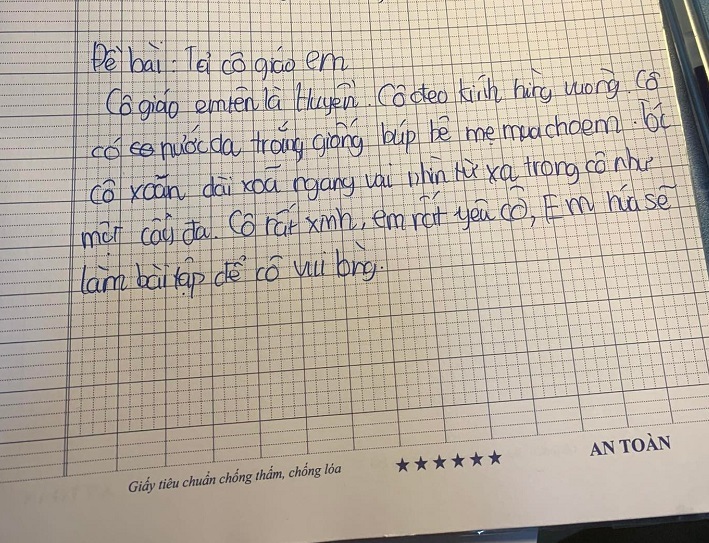 Đề bài: Tả cô giáo em
Cô giáo em tên là Huyền. Cô đeo kính hình vuông. Cô
có nước da trắng giống búp bê mẹ mua cho em. tóc
cô xoăn dài xoã ngang vai nhìn từ xa trông cô như
một cây đa. Cô rất xinh, em rất yêu cô, Em hứa sẽ
làm bài tập để cô vui lòng.
Giấy tiêu chuẩn chống thấm, chống lóa
★★★★★★
AN TOÀN